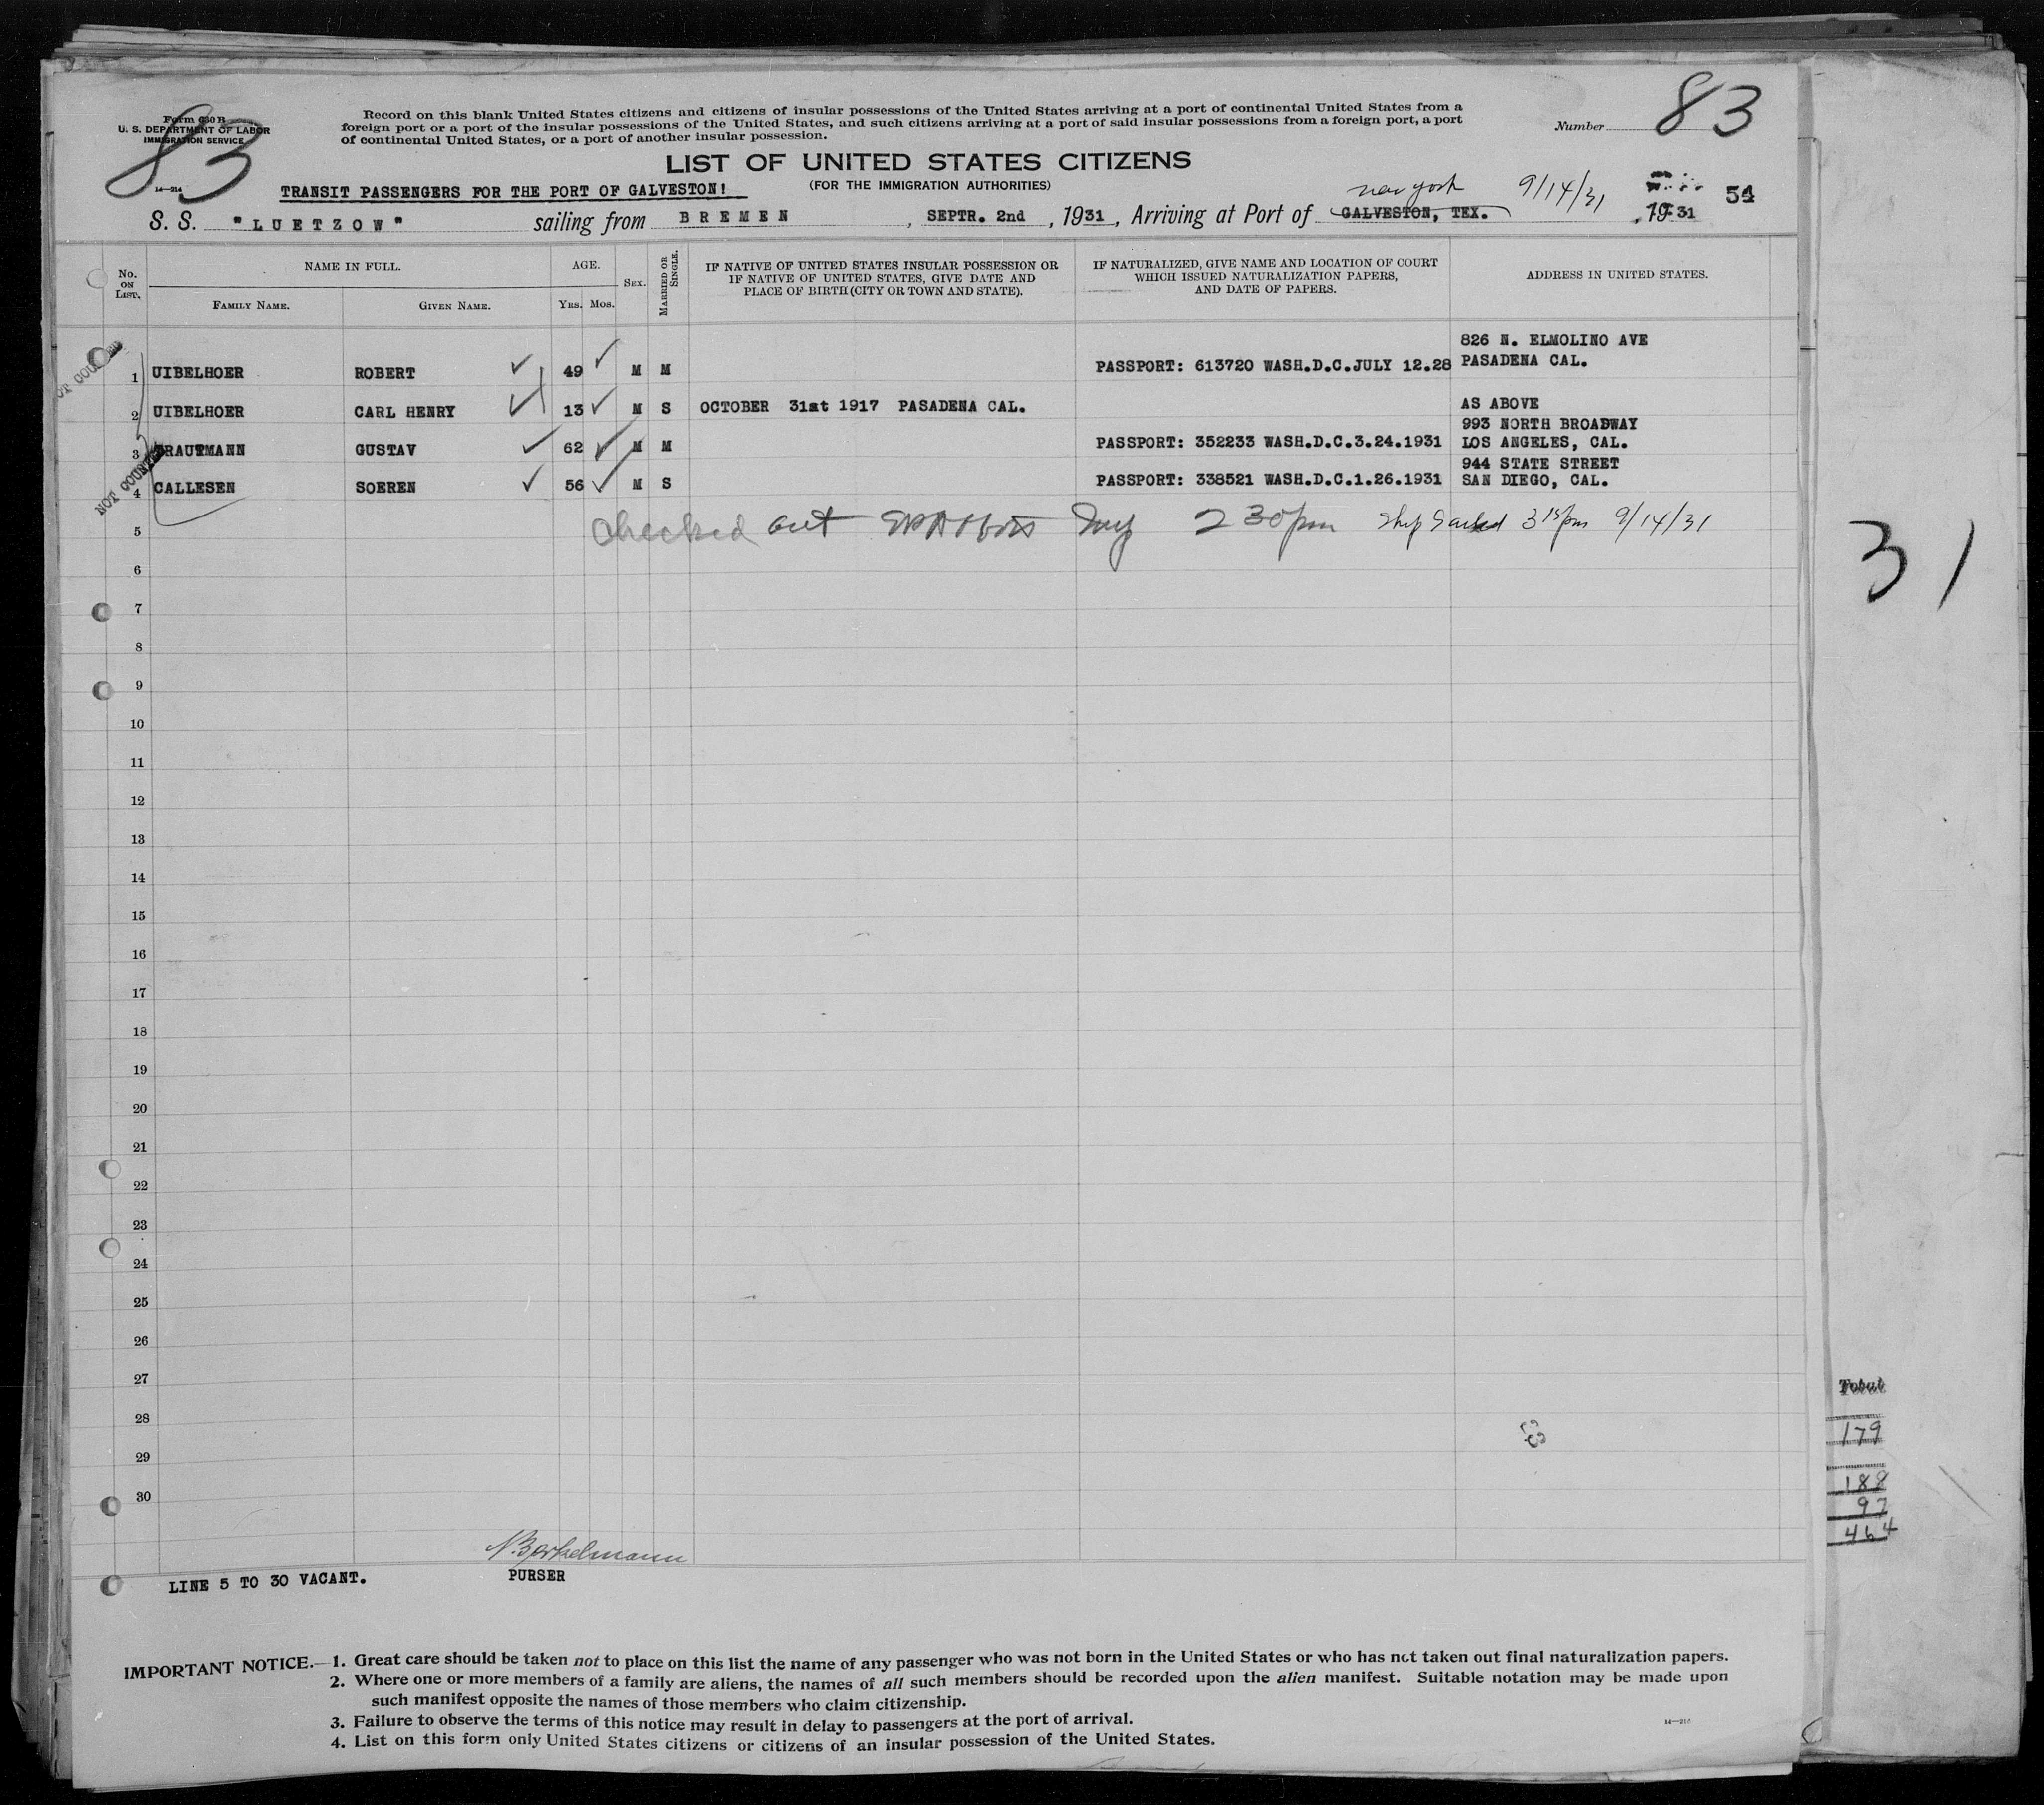 83
83
Form 630 B
U. S. DEPARTMENT OF LABOR
IMMIGRATION SERVICE
14—214
Record on this blank United States citizens and citizens of insular possessions of the United States arriving at a port of continental United States from a
foreign port or a port of the insular possessions of the United States, and such citizens arriving at a port of said insular possessions from a foreign port, a port
of continental United States, or a port of another insular possession.
Number
LIST OF UNITED STATES CITIZENS
(FOR THE IMMIGRATION AUTHORITIES)
TRANSIT PASSENGERS FOR THE PORT OF GALVESTON!
new york 9/14/31
54
S. S. "LUETZOW" sailing from BREMEN, SEPTR. 2nd, 1931, Arriving at Port of GALVESTON, TEX., 1931
No. ON LIST. NAME IN FULL. AGE. SEX. MARRIED OR SINGLE. IF NATIVE OF UNITED STATES INSULAR POSSESSION OR IF NATIVE OF UNITED STATES, GIVE DATE AND PLACE OF BIRTH (CITY OR TOWN AND STATE). IF NATURALIZED, GIVE NAME AND LOCATION OF COURT WHICH ISSUED NATURALIZATION PAPERS, AND DATE OF PAPERS. ADDRESS IN UNITED STATES.
FAMILY NAME. GIVEN NAME. YRS. MOS.
826 N. ELMOLINO AVE
1 UIBELHOER ROBERT 49 M M PASSPORT: 613720 WASH.D.C.JULY 12.28 PASADENA CAL.
2 UIBELHOER CARL HENRY 13 M S OCTOBER 31st 1917 PASADENA CAL. AS ABOVE
993 NORTH BROADWAY
3 TRAUTMANN GUSTAV 62 M M PASSPORT: 352233 WASH.D.C.3.24.1931 LOS ANGELES, CAL.
944 STATE STREET
4 CALLESEN SOEREN 56 M S PASSPORT: 338521 WASH.D.C.1.26.1931 SAN DIEGO, CAL.
NOT COUNTED
5 checked out 2 30 pm Ship Sailed 3 15 pm 9/14/31
31
6
7
8
9
10
11
12
13
14
15
16
17
18
19
20
21
22
23
24
25
26
27
28
29
30
Total
179
188
97
464
N. Borkelmann
LINE 5 TO 30 VACANT. PURSER
IMPORTANT NOTICE.—1. Great care should be taken not to place on this list the name of any passenger who was not born in the United States or who has not taken out final naturalization papers.
2. Where one or more members of a family are aliens, the names of all such members should be recorded upon the alien manifest. Suitable notation may be made upon
such manifest opposite the names of those members who claim citizenship.
3. Failure to observe the terms of this notice may result in delay to passengers at the port of arrival.
14—214
4. List on this form only United States citizens or citizens of an insular possession of the United States.